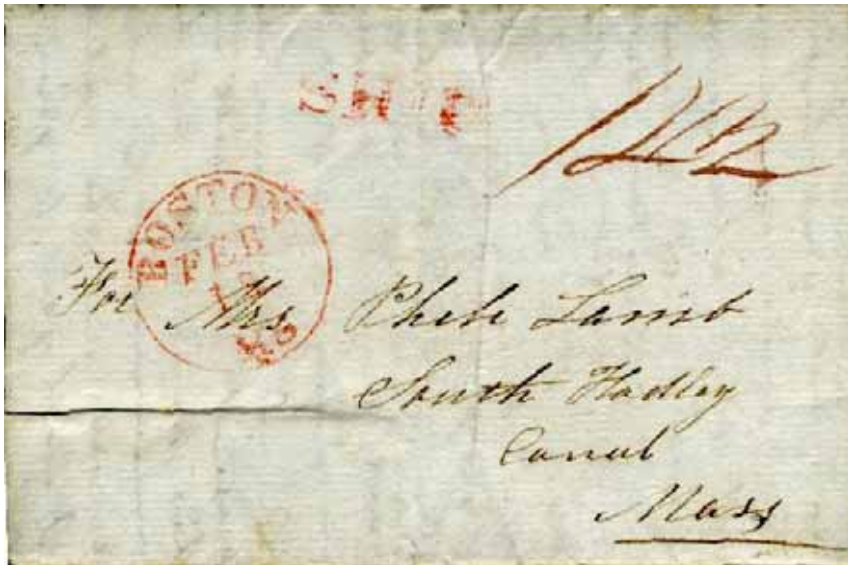 SHIP
BOSTON
FEB
MS
For Mrs Phebe Lamb
South Hadley
Canal
Mass